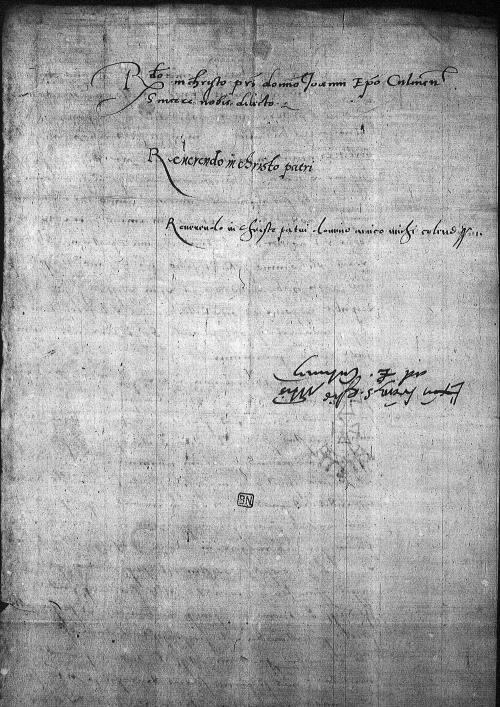 R do in christo pri domino Joanni Epo Culmen
Sincere nobis dilecto
Reverendo in christo patri
Reverendo in christo patri domino amico michi colend
ad E. Culmen
BN